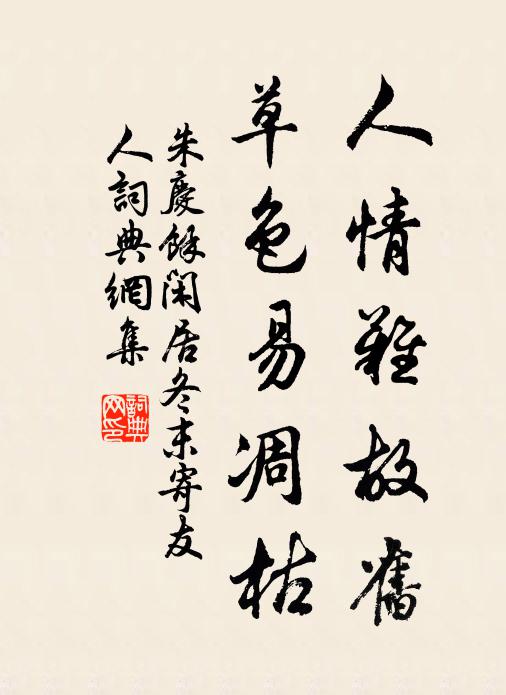 人情難故舊
草色易凋枯
朱慶餘閑居冬末寄友
人詞典網集
詞典
网印